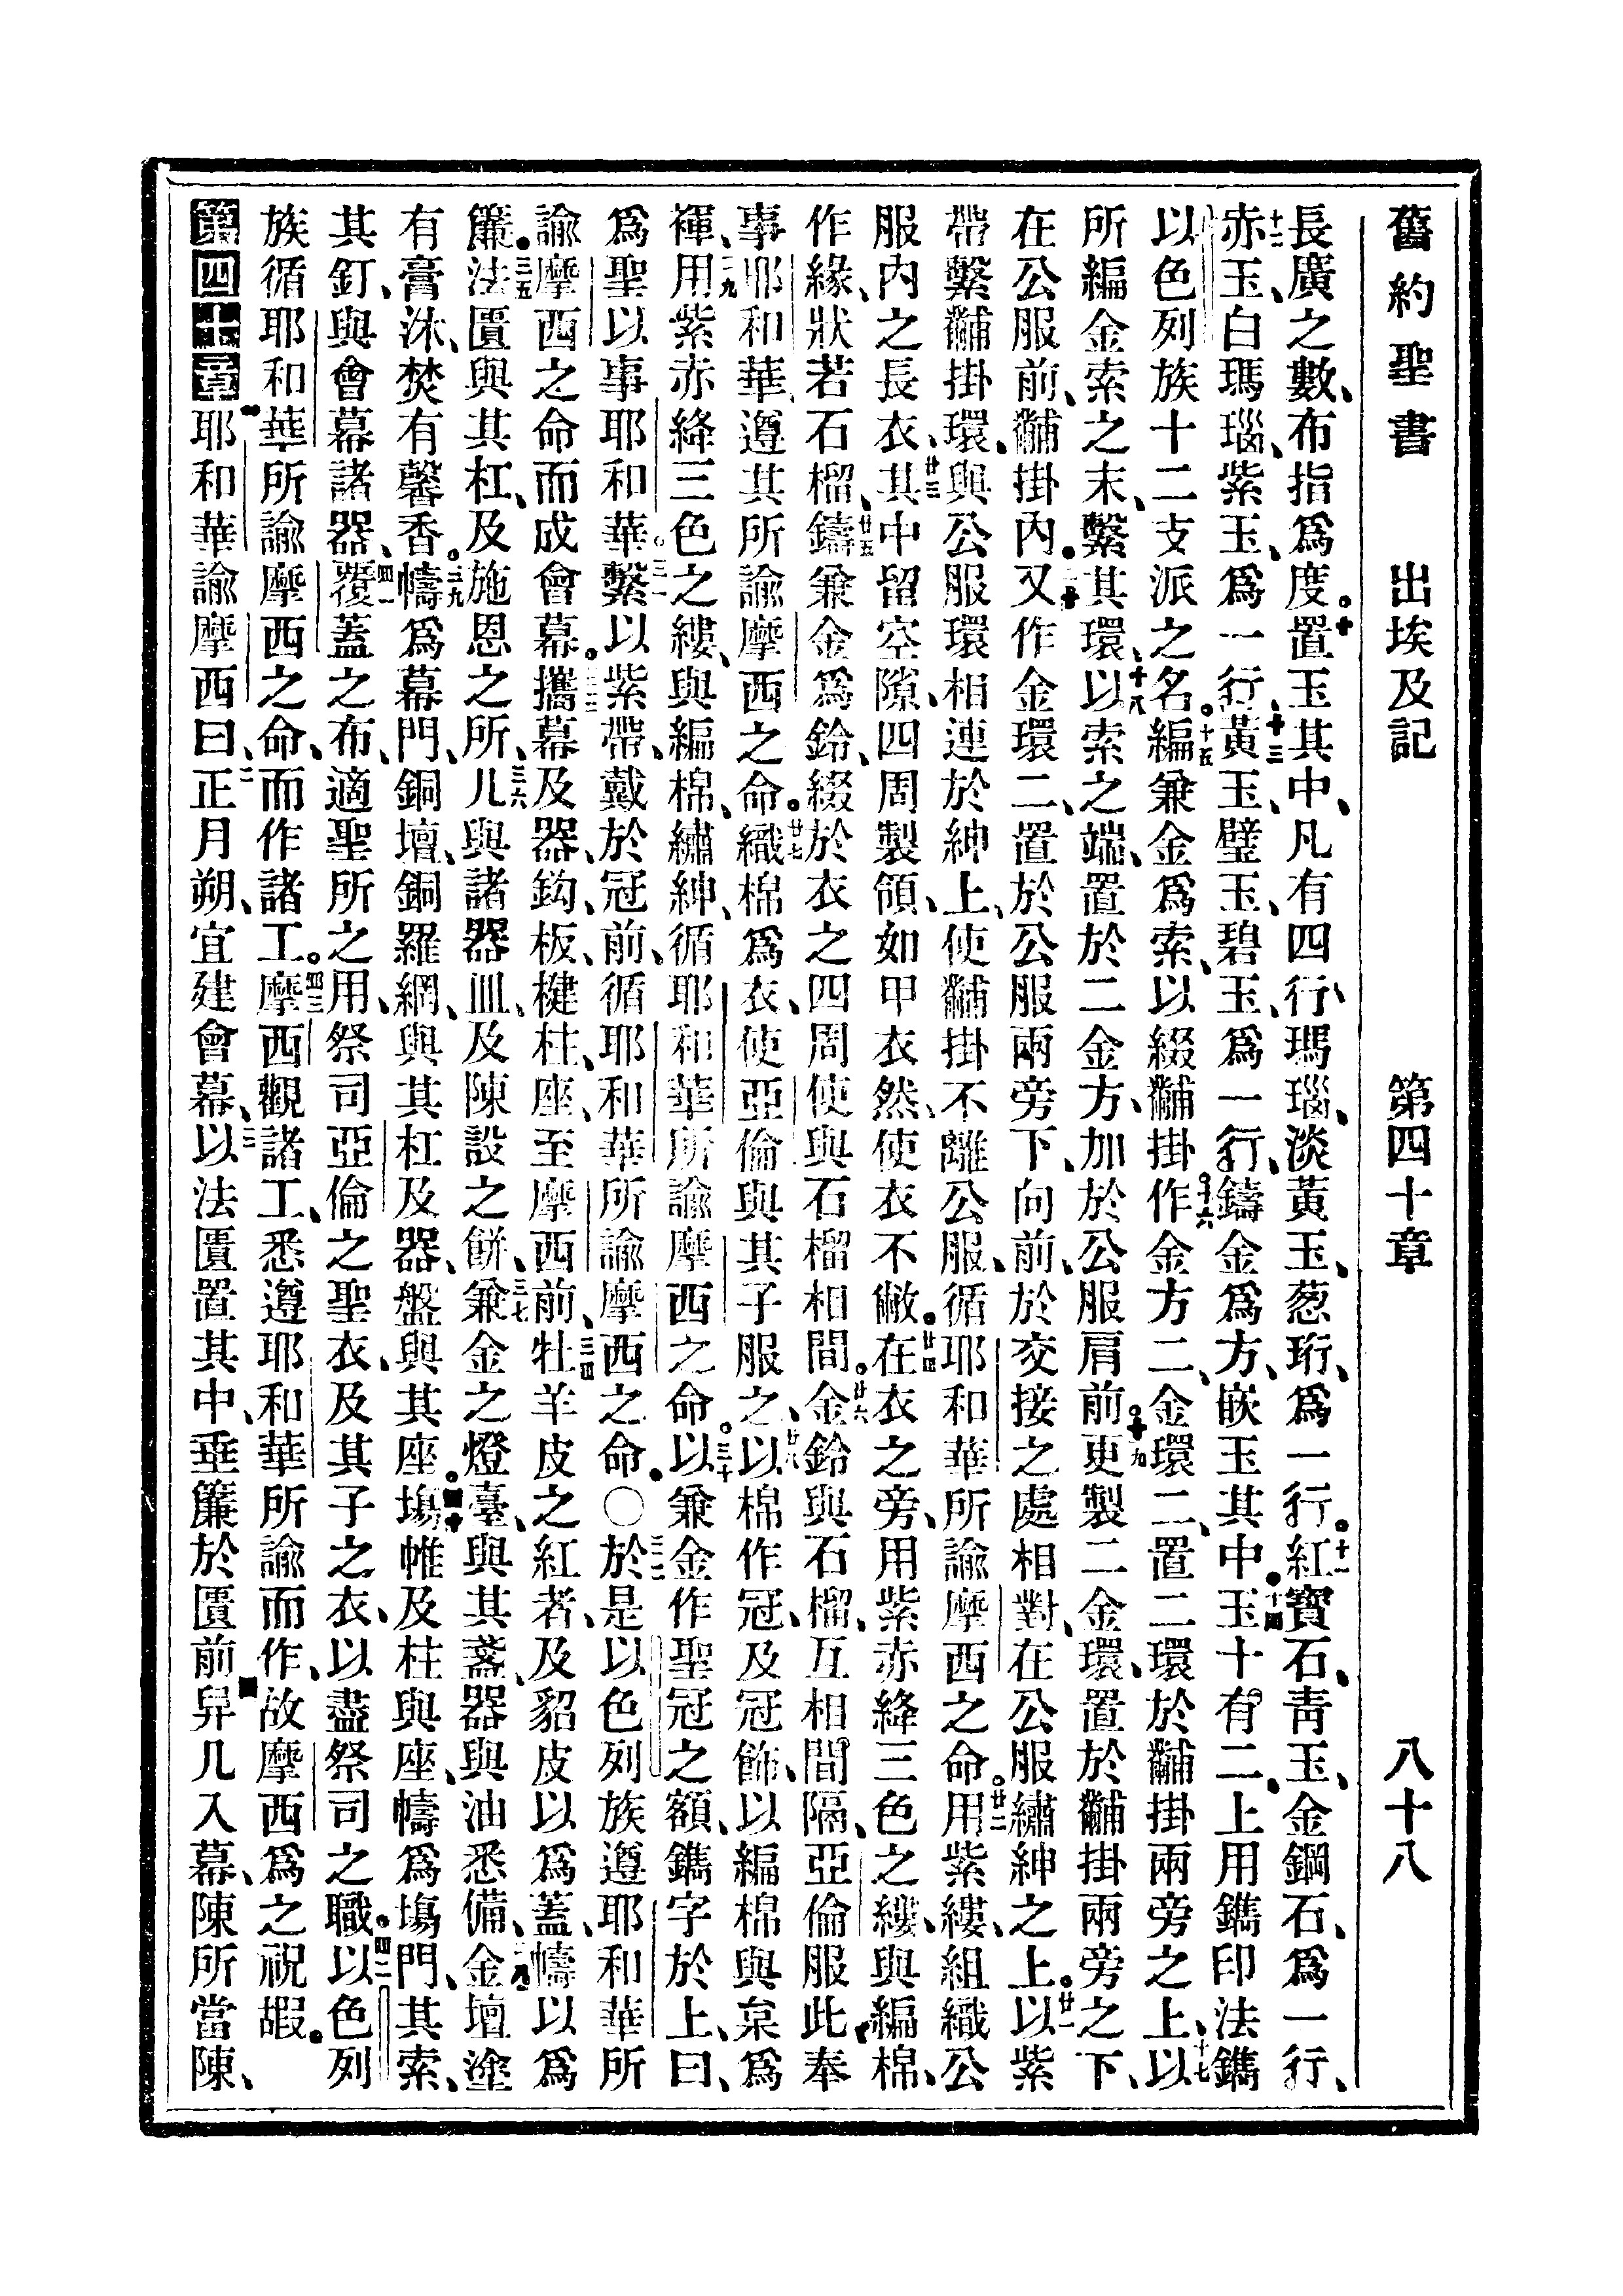 舊約聖書 出埃及記 第四十章 八十八
長廣之數、布指爲度。十置玉其中、凡有四行、瑪瑙、淡黃玉、葱珩、爲一行。十一紅寶石、靑玉、金鋼石、爲一行、
十二赤玉、白瑪瑙、紫玉、爲一行、十三黃玉、璧玉、碧玉、爲一行、鑄金爲方、嵌玉其中。十四玉十有二、上用鐫印法鐫
以色列族十二支派之名。十五編兼金爲索、以綴黼掛。十六作金方二、金環二、置二環於黼掛兩旁之上、十七以
所編金索之末、繫其環、十八以索之端、置於二金方、加於公服肩前。十九更製二金環、置於黼掛兩旁之下、
在公服前、黼掛內。二十又作金環二、置於公服兩旁下、向前、於交接之處相對、在公服繡紳之上。廿一以紫
帶繫黼掛環、與公服環相連於紳上、使黼掛不離公服、循耶和華所諭摩西之命。廿二用紫縷、組織公
服內之長衣、廿三其中留空隙、四周製領、如甲衣然、使衣不敝。廿四在衣之旁、用紫赤絳三色之縷、與編棉、
作緣、狀若石榴、廿五鑄兼金爲鈴、綴於衣之四周、使與石榴相間。廿六金鈴與石榴、互相間隔、亞倫服此、奉
事耶和華、遵其所諭摩西之命。廿七織棉爲衣、使亞倫與其子服之、廿八以棉作冠、及冠飾、以編棉與枲爲
褌、二九用紫赤絳三色之縷、與編棉、繡紳、循耶和華所諭摩西之命。三十以兼金作聖冠之額、鐫字於上、曰、
爲聖以事耶和華。三一繫以紫帶、戴於冠前、循耶和華所諭摩西之命。○三二於是以色列族遵耶和華所
諭摩西之命而成會幕。三三攜幕及器、鈎、板、楗、柱、座、至摩西前、三四牡羊皮之紅者、及貂皮以爲蓋、幬以爲
簾。三五法匱與其杠、及施恩之所、三六几與諸器皿、及陳設之餅、三七兼金之燈臺、與其盞、器與油悉備、三八金壇塗
有膏沐、焚有馨香。三九幬爲幕門、銅壇、銅羅網、與其杠及器、盤與其座。四十場帷及柱與座、幬爲場門、其索、
其釘、與會幕諸器、四一覆蓋之布、適聖所之用、祭司亞倫之聖衣、及其子之衣、以盡祭司之職。四二以色列
族循耶和華所諭摩西之命、而作諸工。四三摩西觀諸工、悉遵耶和華所諭而作、故摩西爲之祝嘏。
第四十章 一耶和華諭摩西曰、二正月朔、宜建會幕、三以法匱置其中、垂簾於匱前、四舁几入幕、陳所當陳、